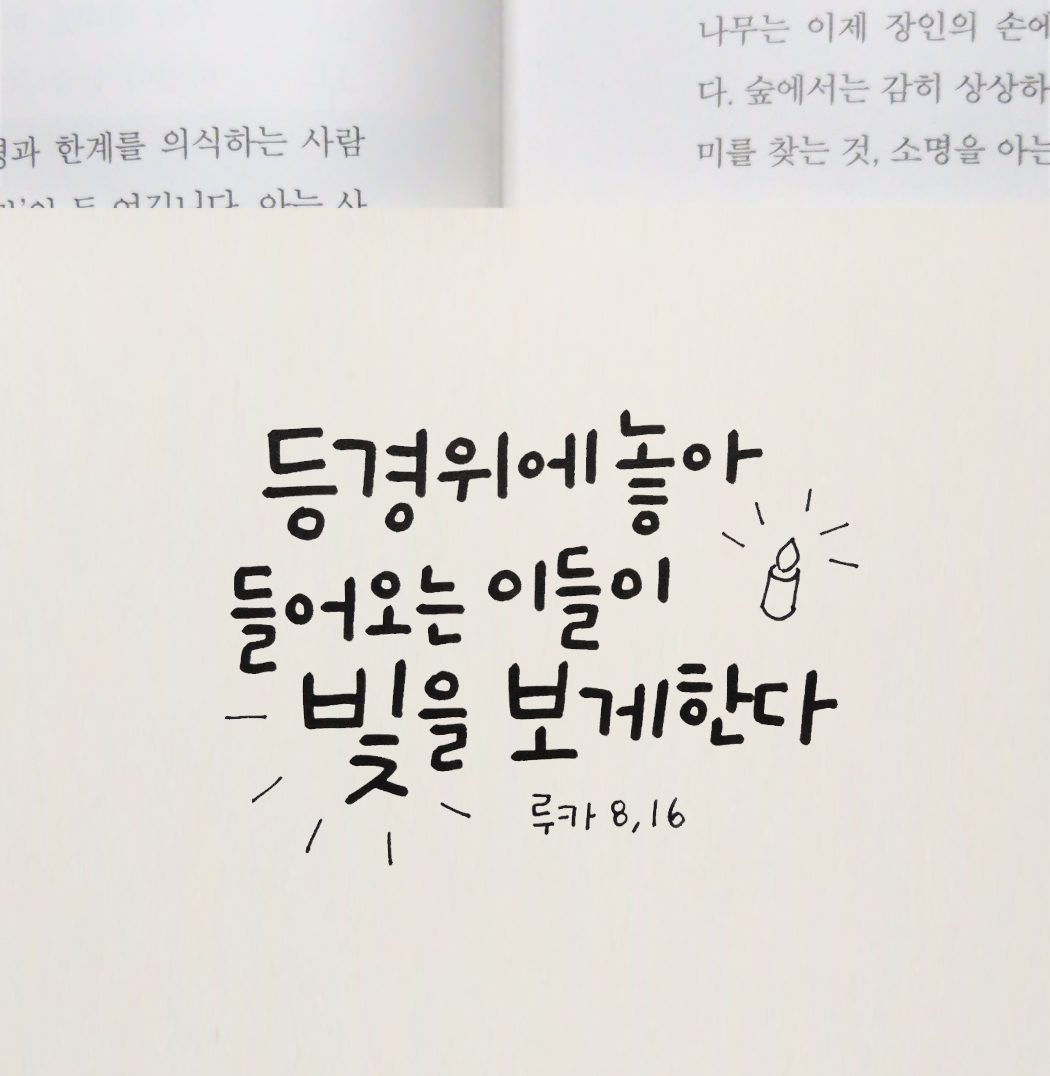 과 한계를 의식하는 사람
나무는 이제 장인의 손에
다. 숲에서는 감히 상상하
미를 찾는 것, 소명을 아는
등경위에 놓아
들어오는 이들이
빛을 보게한다
루카 8,16